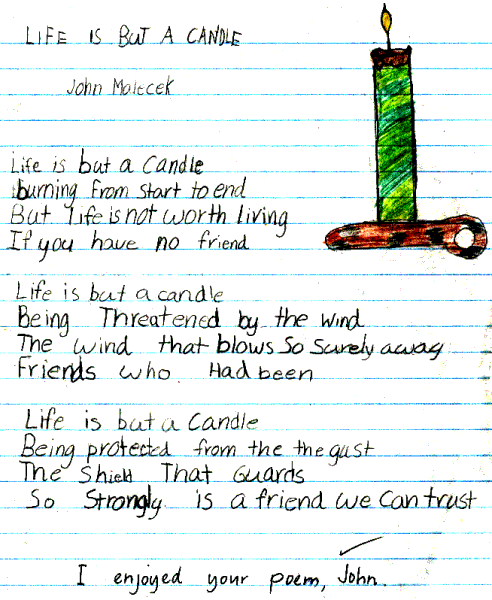 LIFE IS BUT A CANDLE
John Malecek
Life is but a Candle
burning from start to end
But life is not worth living
If you have no friend
Life is but a candle
Being Threatened by the wind
The wind that blows So Surely away
Friends who Had been
Life is but a Candle
Being protected from the the gust
The Shield That Guards
So Strongly is a friend we Can trust
I enjoyed your poem, John.